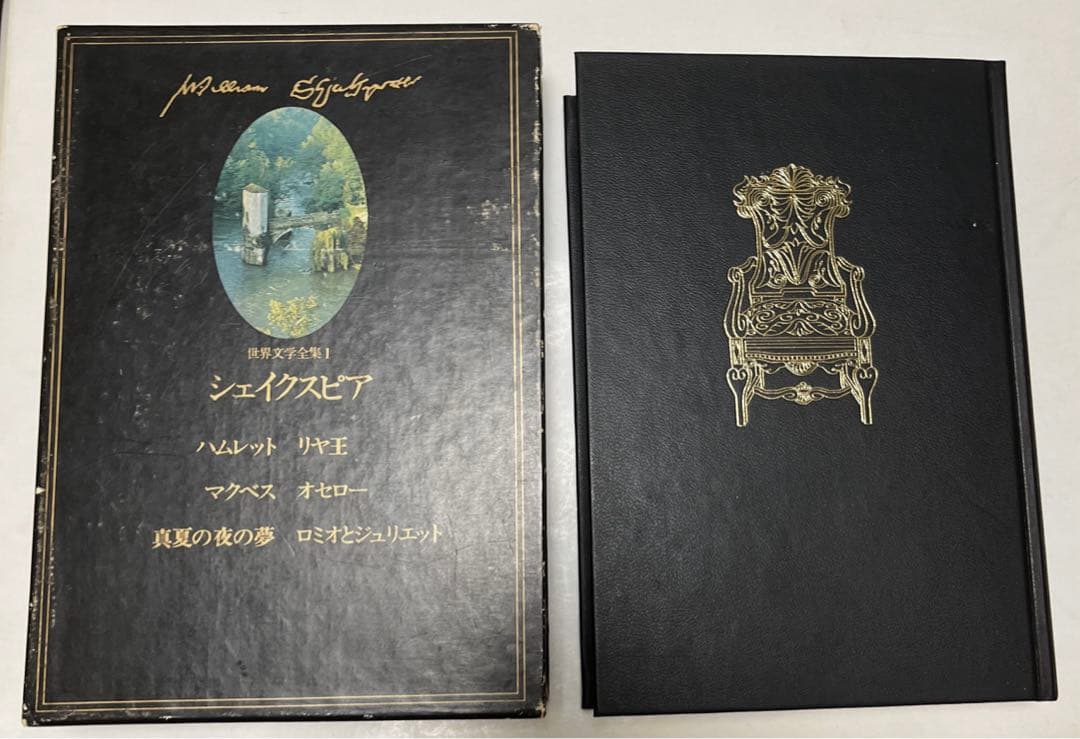 William Shakspeare
世界文学全集 1
シェイクスピア
ハムレット リヤ王
マクベス オセロー
真夏の夜の夢 ロミオとジュリエット